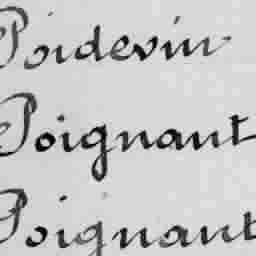 Poidevin
Poignant
Poignant